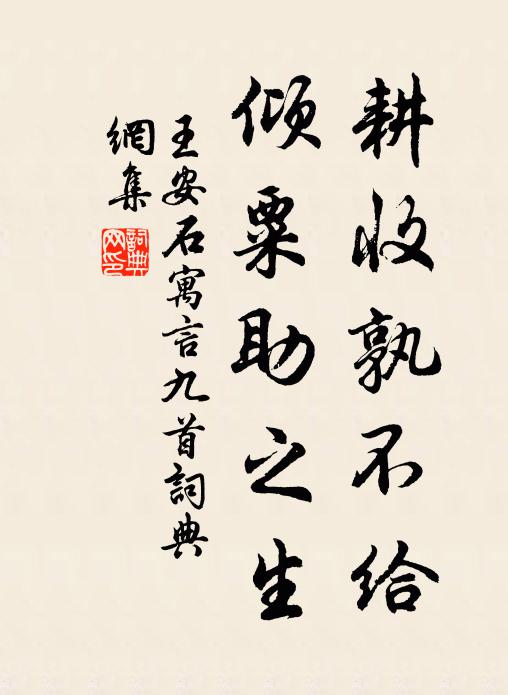 耕收孰不給
傾粟助之生
王安石寓言九首詞典
網集
詞典
网印